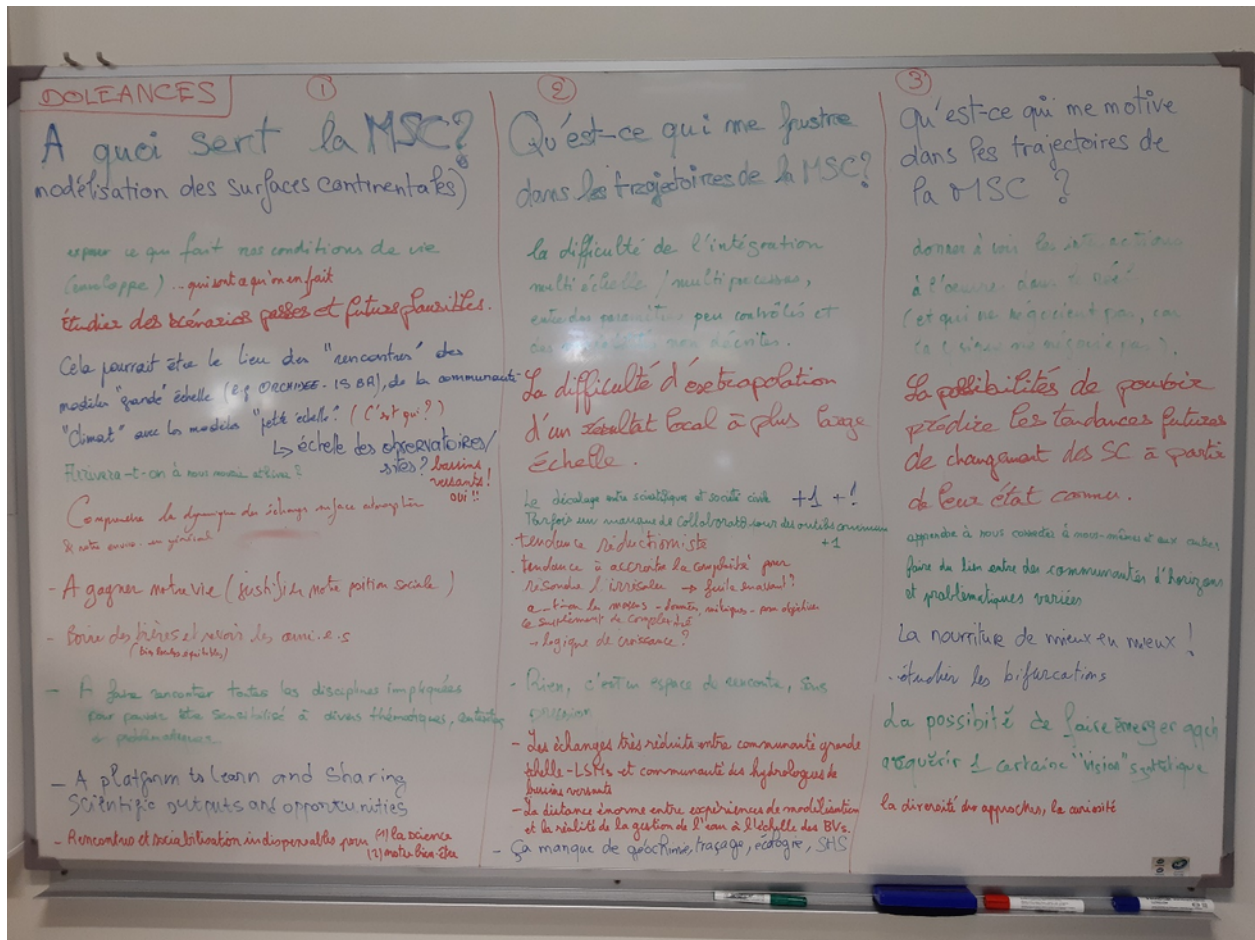 DOLEANCES
①
A quoi sert la MSC?
modélisation des surfaces continentales)
ce qui fait nos conditions de vie
(enveloppe) ... qui sont ce qu'on en fait
Étudier des scénarios passés et futurs plausibles.
Cela pourrait être le lieu des "rencontres" des
modèles "grande" échelle (e.g ORCHIDEE - ISBA), de la communauté
"Climat" avec les modèles "petite échelle". (C'est qui?)
↳ échelle des observatoires/
sites? bassins
versants!
oui!!
Arrivera-t-on à nous
Comprendre la dynamique des échanges surface atmosphère
& notre enviro. en général
- A gagner notre vie (justifier notre position sociale)
- Boire des bières et revoir les ami.e.s
- A faire rencontrer toutes les disciplines impliquées
pour pouvoir être sensibilisé à divers thématiques,
& problématiques
- A platform to learn and Sharing
Scientific outputs and opportunities
- Rencontres et sociabilisation indispensables pour (1) la science
(2) notre bien-être
②
Qu'est-ce qui me frustre
dans les trajectoires de la MSC?
la difficulté de l'intégration
multi échelle / multi processus,
entre des paramètres peu contrôlés et
des non décrites.
La difficulté d'extrapolation
d'un résultat local à plus large
échelle.
Le décalage entre scientifiques et société civile +1 +!
Parfois un manque de collaborat° pour des outils communs
+1
. tendance réductionniste
. tendance à accroître la complexité pour
résoudre l'irrésolu → fuite en avant?
a-t-on les moyens - données, métriques - pour objectiver
ce supplément de complexité
→ logique de croissance?
- Rien, c'est un espace de rencontre, sans
pression
- Les échanges très réduits entre communauté grande
échelle-LSMs et communauté des hydrologues de
bassins versants
- La distance énorme entre expériences de modélisation
et la réalité de la gestion de l'eau à l'échelle des BVs.
- Ça manque de géochimie, traçage, écologie, SHS
③
Qu'est-ce qui me motive
dans les trajectoires de
la MSC ?
donner à voir les interactions
à l'oeuvre dans le
(et qui ne négocient pas, car
ne négocie pas).
La possibilités de pouvoir
prédire les tendances futures
de changement des SC à partir
de leur état connu.
apprendre à nous connecter à nous-mêmes et aux autres
faire du lien entre des communautés d'horizons
et problématiques variées
La nourriture de mieux en mieux !
. étudier les bifurcations
La possibité de faire émerger qqch
acquérir 1 certaine "vision" synthétique
la diversité des approches, la curiosité